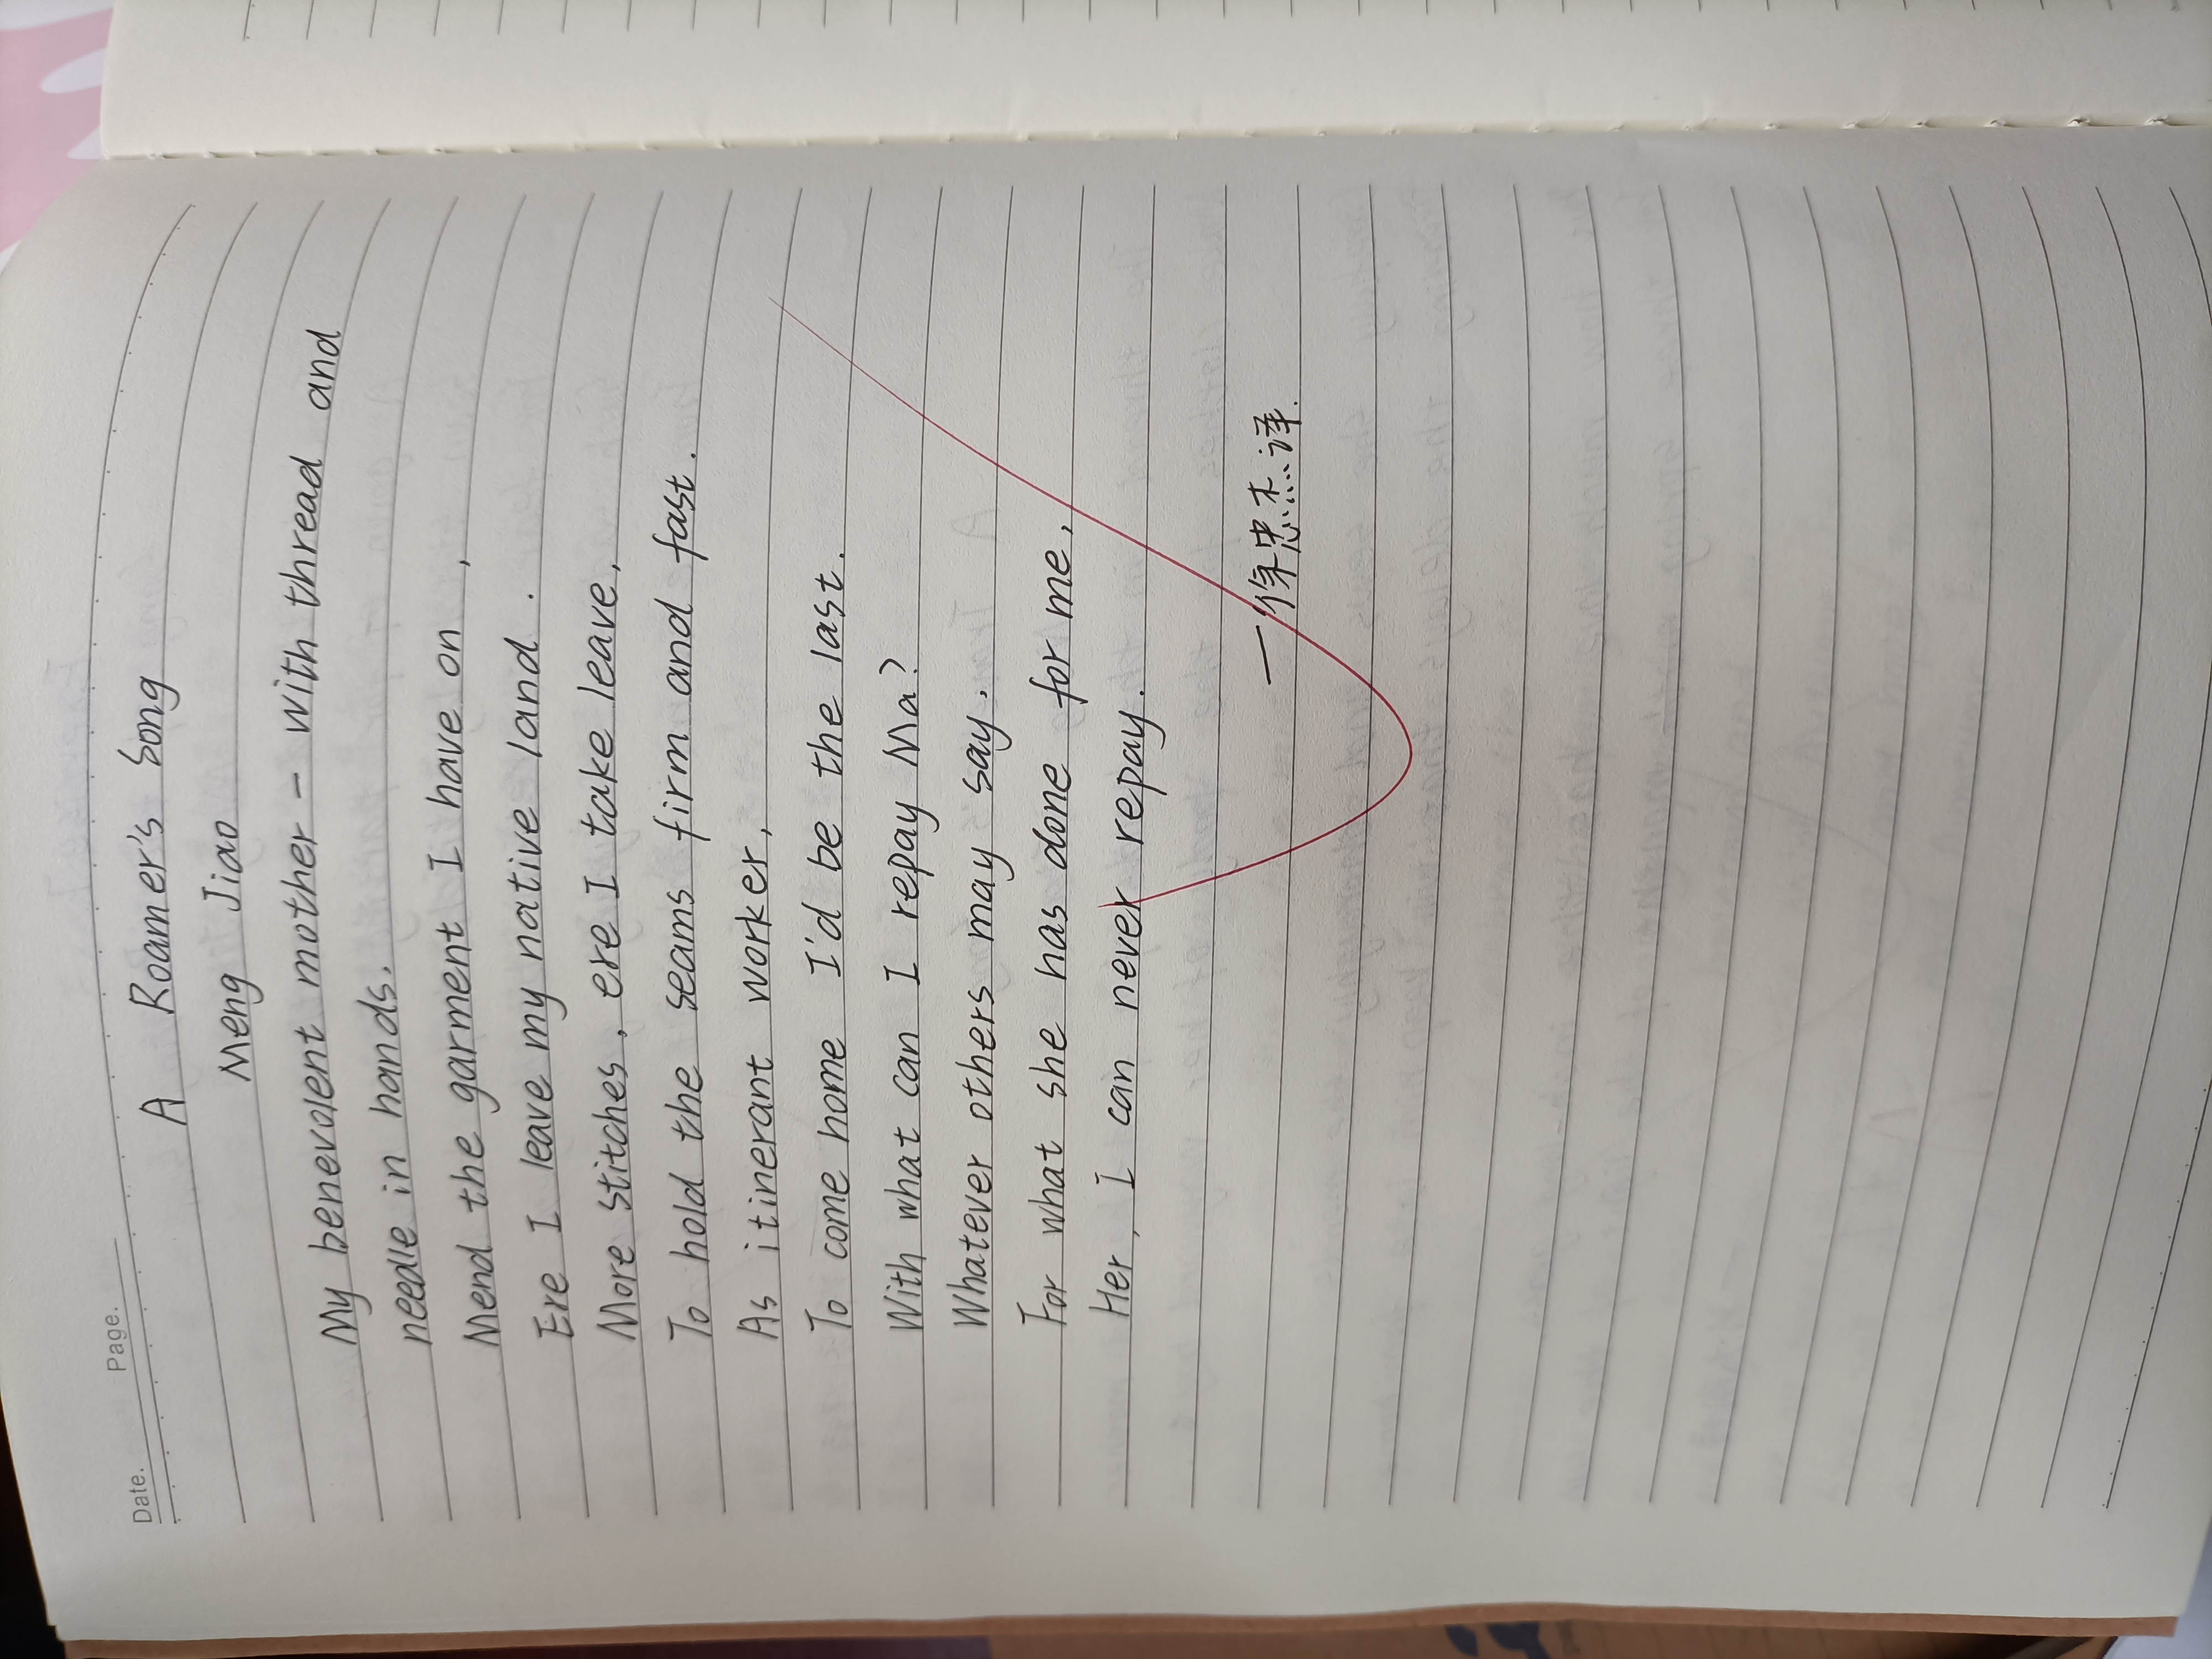 Date. Page.
A Roamer's Song
Meng Jiao
My benevolent mother – with thread and
needle in hands.
Mend the garment I have on,
Ere I leave my native land.
More stitches, ere I take leave,
To hold the seams firm and fast.
As itinerant worker,
To come home I'd be the last.
With what can I repay Ma?
Whatever others may say.
For what she has done for me,
Her, I can never repay.
—徐忠杰译.